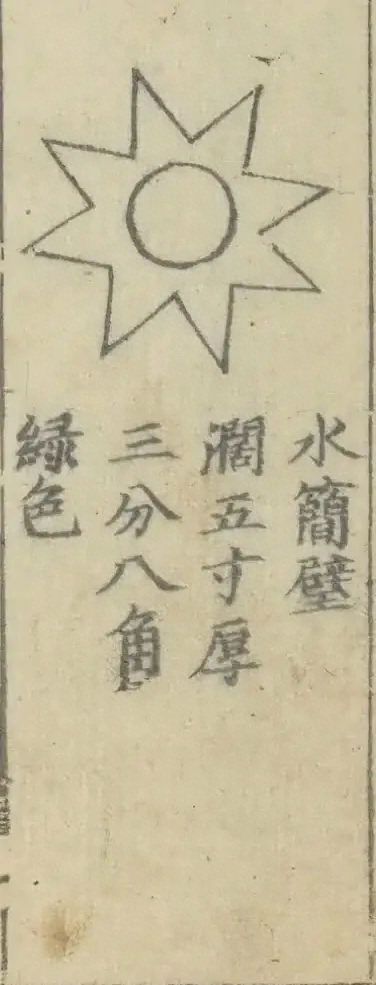 水簡壁
濶五寸厚
三分八角
緑色